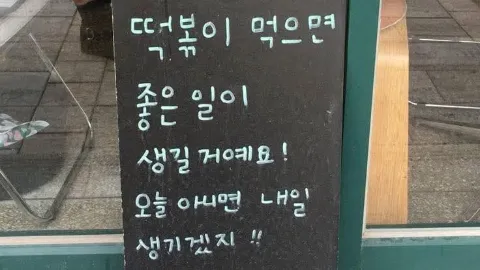 떡볶이 먹으면
좋은 일이
생길거예요!
오늘 아니면 내일
생기겠지!!